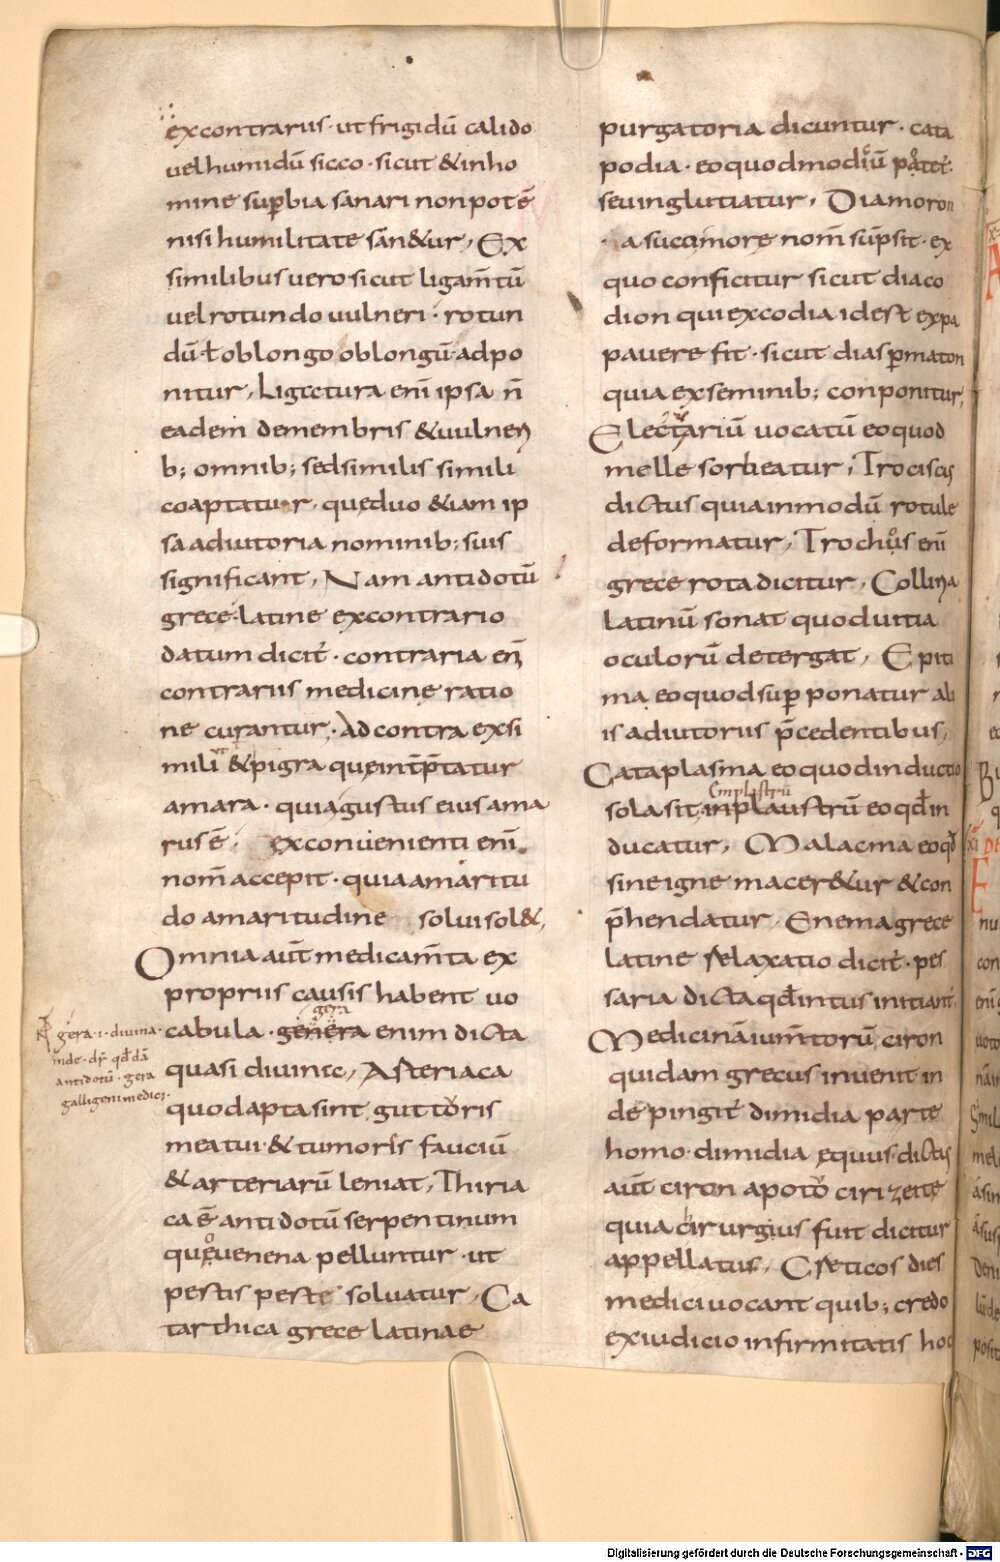 excontrariis · ut frigidū calido
uel humidū sicco · sicut & inho
mine sup̱bia sanari non potē
nisi humilitate san&ur, Ex
similibus uero sicut ligam̄tū
uel rotundo uulneri · rotun
dū · ł oblongo oblongū · adpo
nitur, Ligatura enī ipsa n̄
eadem demembris & uulneꝝ
b; omnib; sed similis simili
coaptatur, quę duo &iam ip
sa adiutoria nominib; suis
significant, Nam antidotū
grece · latine excontrario
datum dicit̄ · contraria en̄
contrariis medicinę ratio
ne curantur, Ad contra exsi
mili & pigra quę int̄p̄tatur
amara · quia gustus eius ama
rus ē, exconuenienti enī
nom̄ accepit · quia amaritu
do amaritudine solui sol&,
Omnia aut̄ medicam̄ta ex
propriis causis habent uo
gera
cabula · genera enim dicta
quasi diuina, Asteriaca
quod apta sint gutturis
meatui · & tumoris fauciū
& arteriarū leniat, Thiria
ca ē antidotū serpentinum
quo uenena pelluntur · ut
pestis peste soluatur, Ca
tarthica grece latinae
gera · i · diuina ·
inde · dr̄ · qđdā
antidotū · gera
galligeni medici ·
purgatoria dicuntur · cata
podia · eo quod modicū
seu inglutiatur, Diamoron
a succi more nom̄ sūpsit · ex
quo conficitur sicut diaco
dion qui excodia id est expa
pauere fit · sicut diasp̱maton
quia ex seminib; conponitur,
Electariū uocatū eo quod
melle sorbeatur, Trociscus
dictus quia inmodū rotule
deformatur, Trochus enī
grece rota dicitur, Colliria
latinū sonat quod uitia
oculorū detergat, Epiti
ma eo quod sup̱ ponatur ali
is adiutoriis p̄cedentibus,
Cataplasma eo quod inductio
Cmplastrū
sola sit · inplaustrū eo qđ in
ducatur, Malacma eo qđ
sine igne macer&ur & con
p̄hendatur · Enema grece
latine relaxatio dicit̄ · pes
saria dicta qđ intus initiant̄,
Medicinā ium̄torū ciron
quidam grecus inuenit in
de pingit̄ dimidia parte
homo · dimidia equus · dictus
aut̄ ciron apotō cirizeite
quia cirurgius fuit dicitur
appellatus, Creticos dies
medici uocant quib; credo
ex iudicio infirmitatis hoc
Digitalisierung gefördert durch die Deutsche Forschungsgemeinschaft - DFG